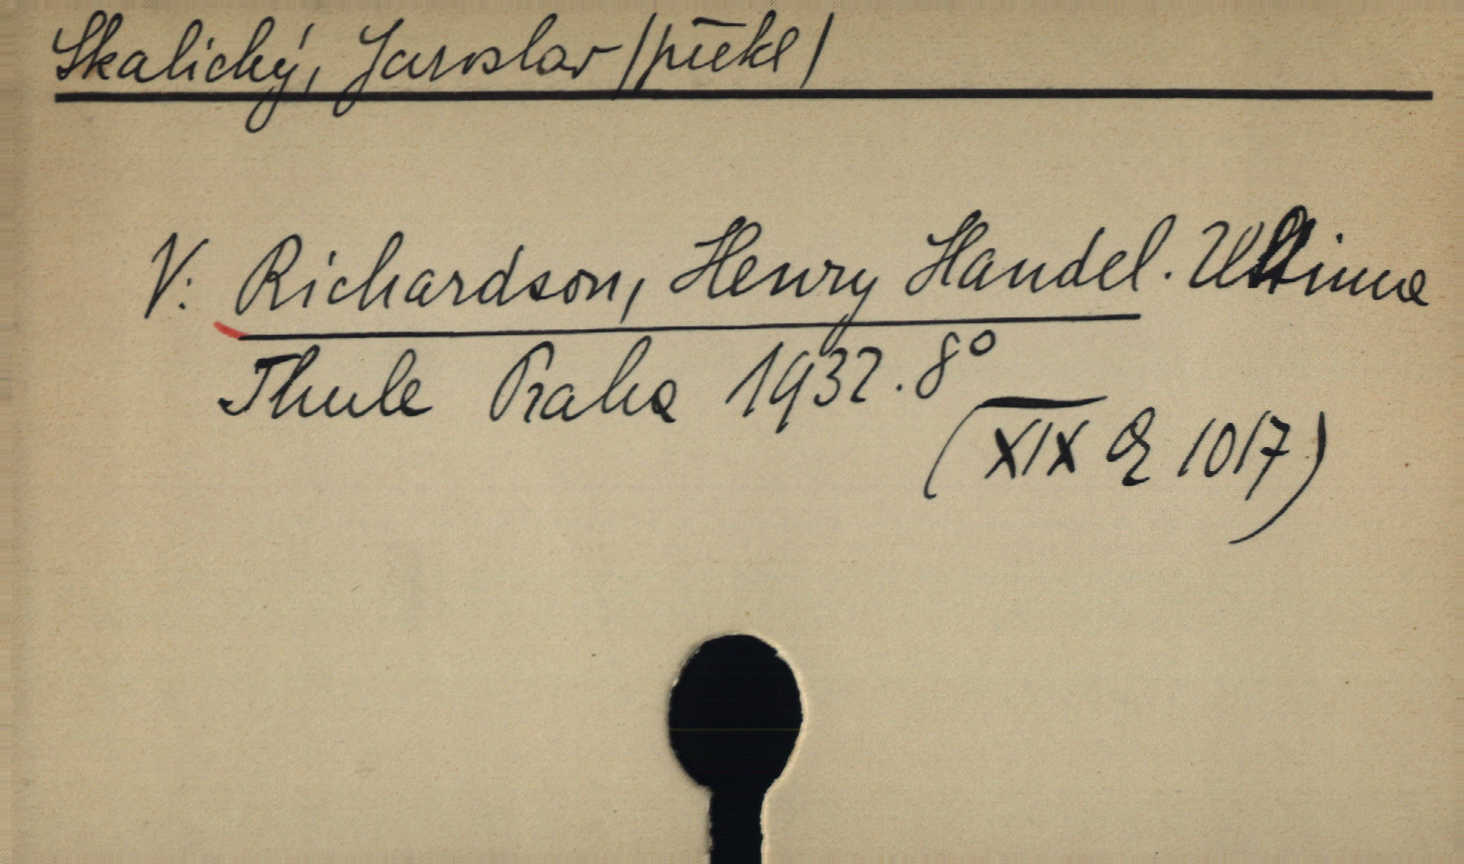 Skalický, Jaroslav /překl/
V: Richardson, Henry Handel. Ultima
Thule Praha 1932. 8°
(XIX Q 1017)